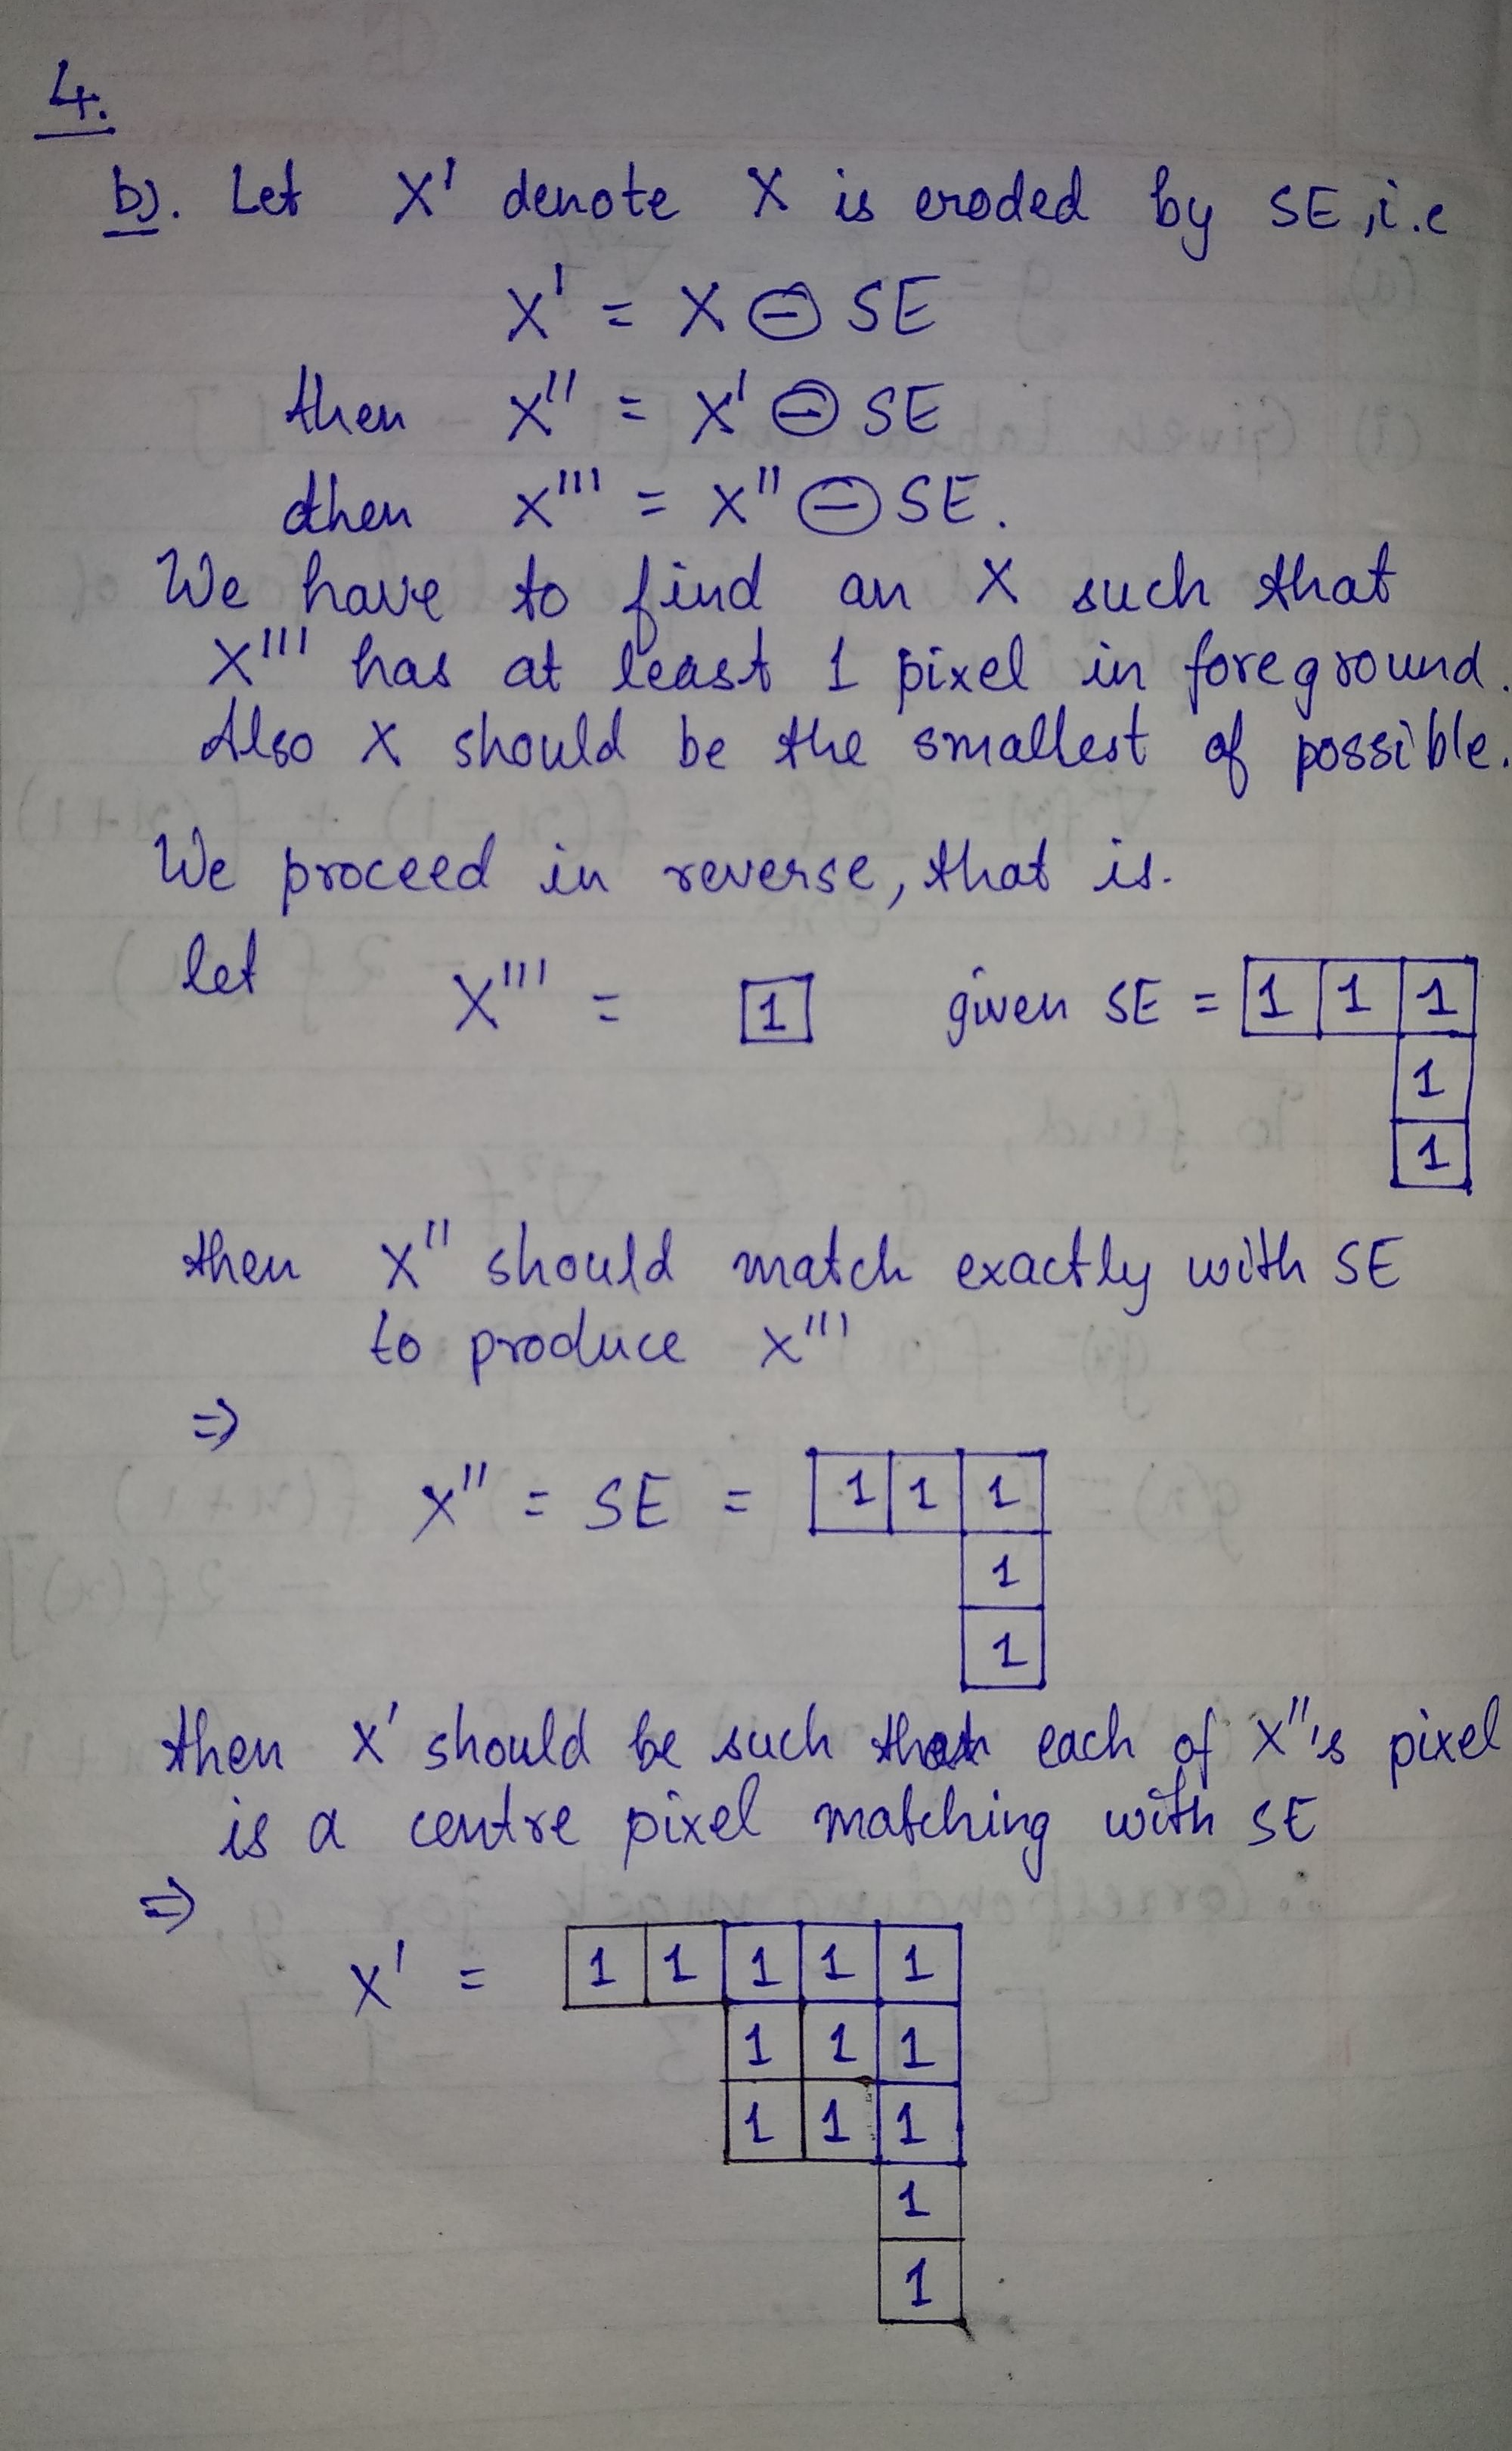 4.
b). Let X' denote X is eroded by SE, i.e
X' = X ⊖ SE
then X'' = X' ⊖ SE
then X''' = X'' ⊖ SE.
We have to find an X such that
X''' has at least 1 pixel in foreground.
Also X should be the smallest of possible.
We proceed in reverse, that is.
let X''' = 1 given SE = 1 1 1
1
1
then X'' should match exactly with SE
to produce X'''
⇒
X'' = SE = 1 1 1
1
1
then X' should be such that each of X'''s pixel
is a centre pixel matching with SE
⇒
X' = 1 1 1 1 1
1 1 1
1 1 1
1
1